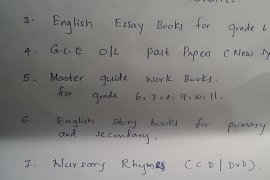 3. English Essay Books for grade 6
4. G.C.E O/L Past Papers (New Sy
5. Master guide work Books.
for grade 6, 7, 8, 9, 10, 11.
6. English story books for primary
and secondary.
7. Nursary Rhymes (CD/DVD).